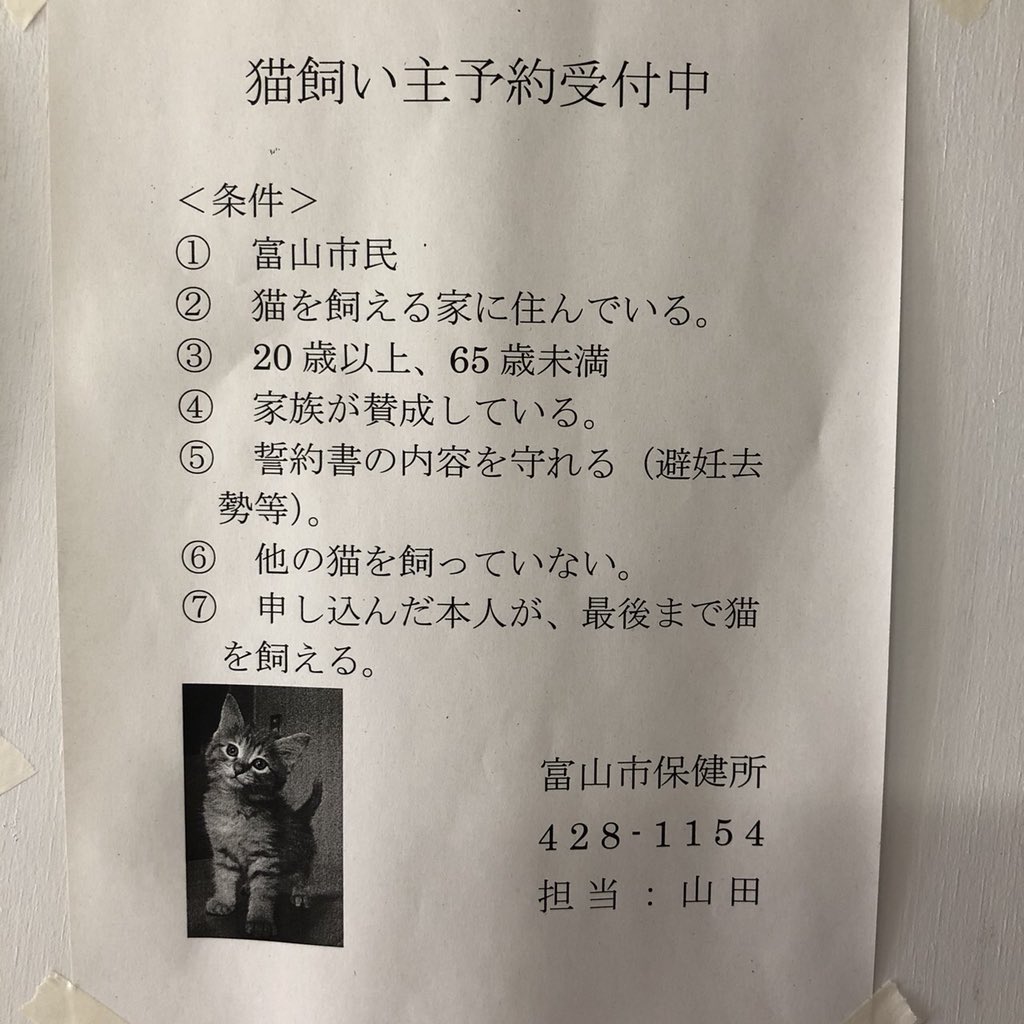 猫飼い主予約受付中
＜条件＞
①　富山市民
②　猫を飼える家に住んでいる。
③　20歳以上、65歳未満
④　家族が賛成している。
⑤　誓約書の内容を守れる（避妊去
勢等）。
⑥　他の猫を飼っていない。
⑦　申し込んだ本人が、最後まで猫
を飼える。
富山市保健所
428-1154
担当：山田